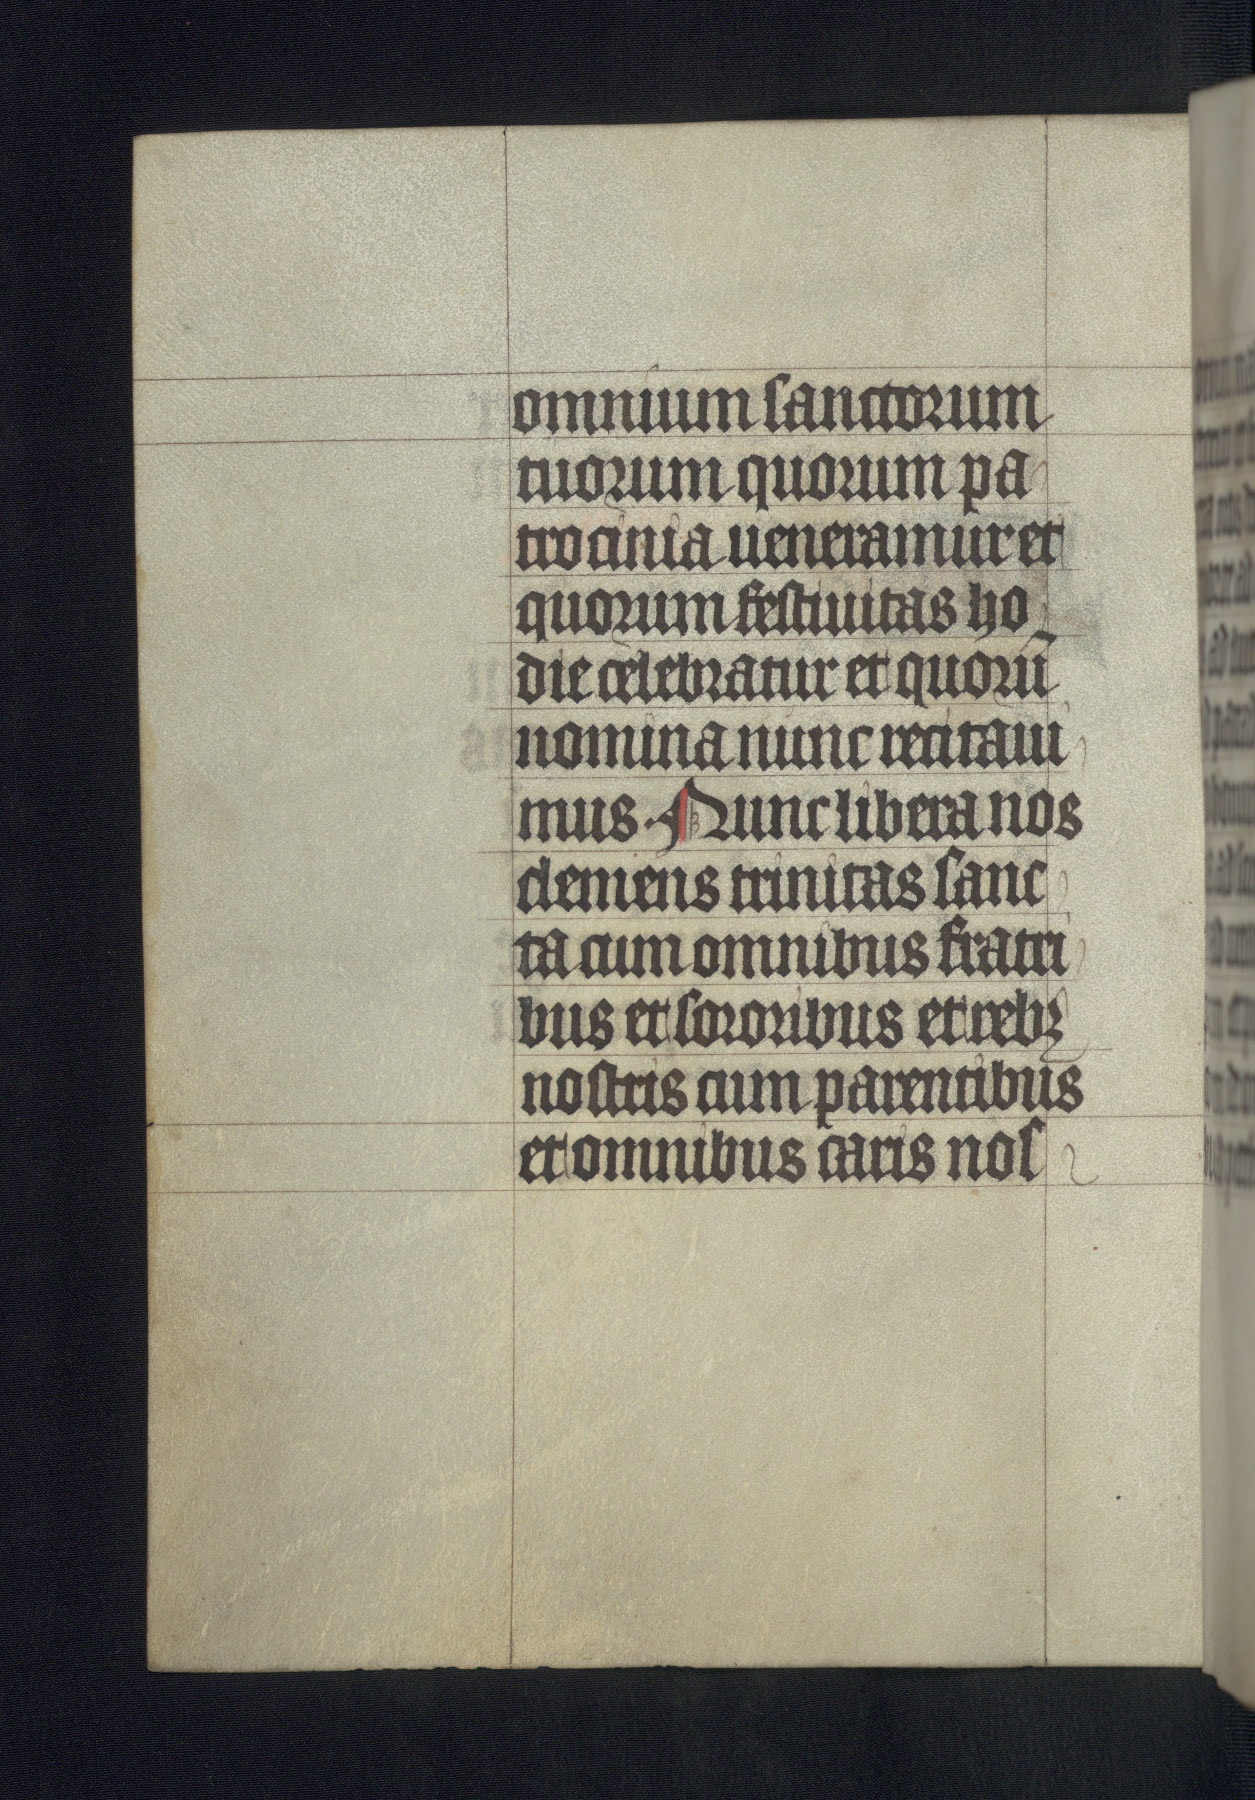 omnium sanctorum
tuorum quorum pa
trocinia ueneramur et
quorum festiuitas ho
die celebratur et quorū
nomina nunc recitaui
mus. Nunc libera nos
clemens trinitas sanc
ta cum omnibus fratri
bus et sororibus et rebꝫ
nostris cum parentibus
et omnibus caris nos